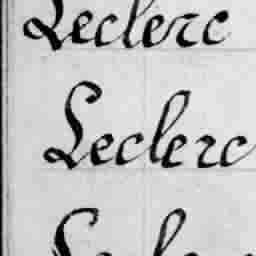 Leclerc
Leclerc